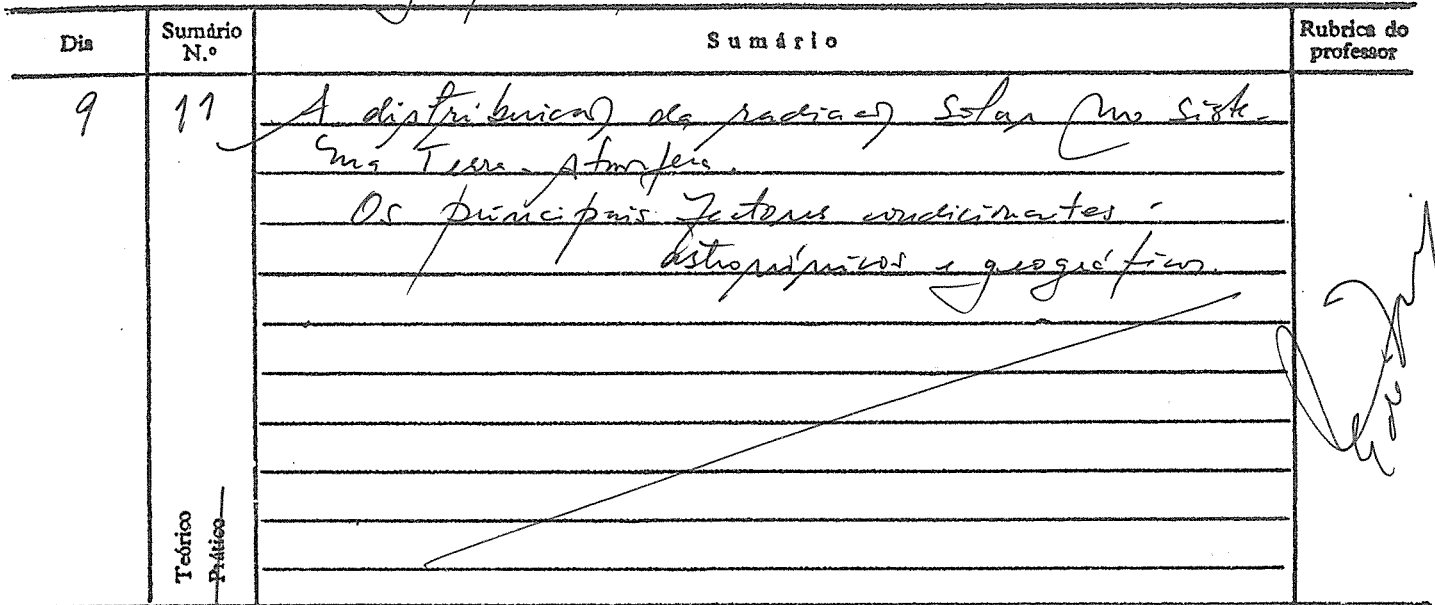 Dia
Sumário N.º
Sumário
Rubrica do professor
9
11
A distribuição da radiação solar no siste-
ma Terra-Atmosfera.
Os principais factores condicionantes:
astronómicos e geográficos.
Teórico
Prático